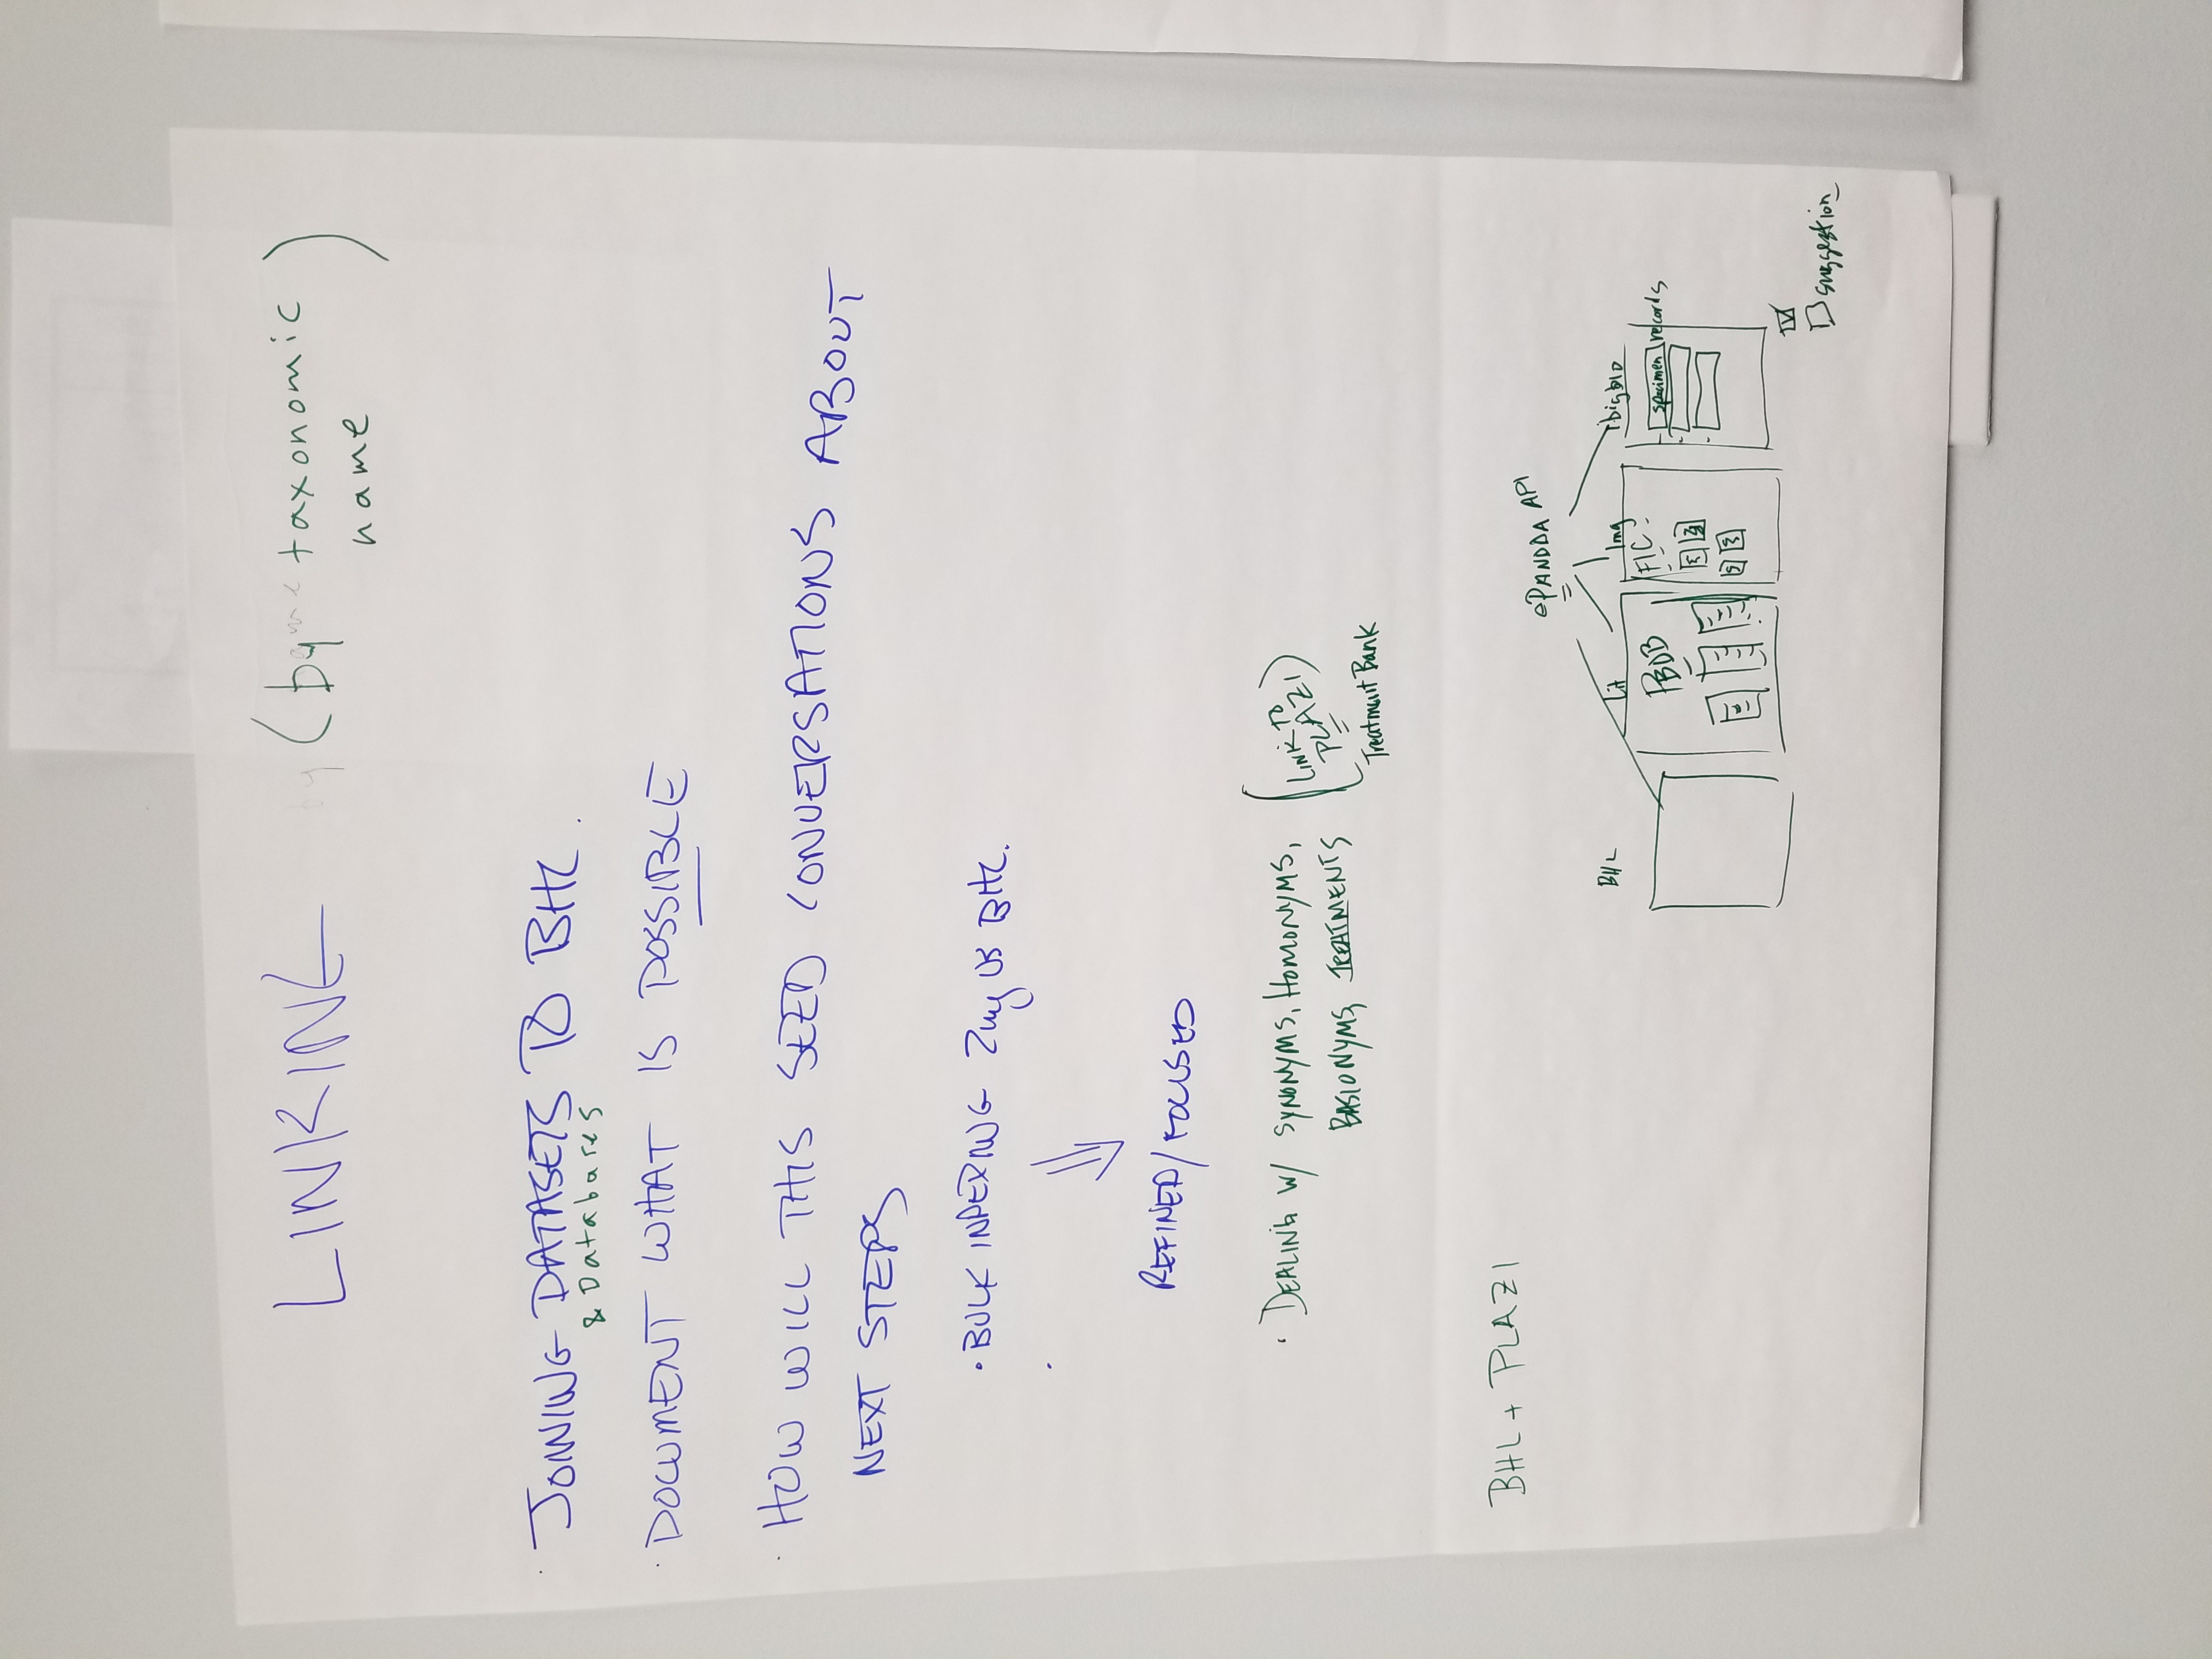 LINKING (by taxonomic
name)
· JOINING DATASETS TO BHL.
& Databases
· DOCUMENT WHAT IS POSSIBLE
· HOW WILL THIS SEED CONVERSATIONS ABOUT
NEXT STEPS
· BULK INDEXING US BHL.
·
REFINED/FOCUSED
· DEALING W/ SYNONYMS, HOMONYMS, (LINK TO
BASIONYMS, TREATMENTS PLAZI)
Treatment Bank
BHL + PLAZI
ePANDDA API
BHL Lit Img idigbio
PBDB FIC
specimen records
suggestion